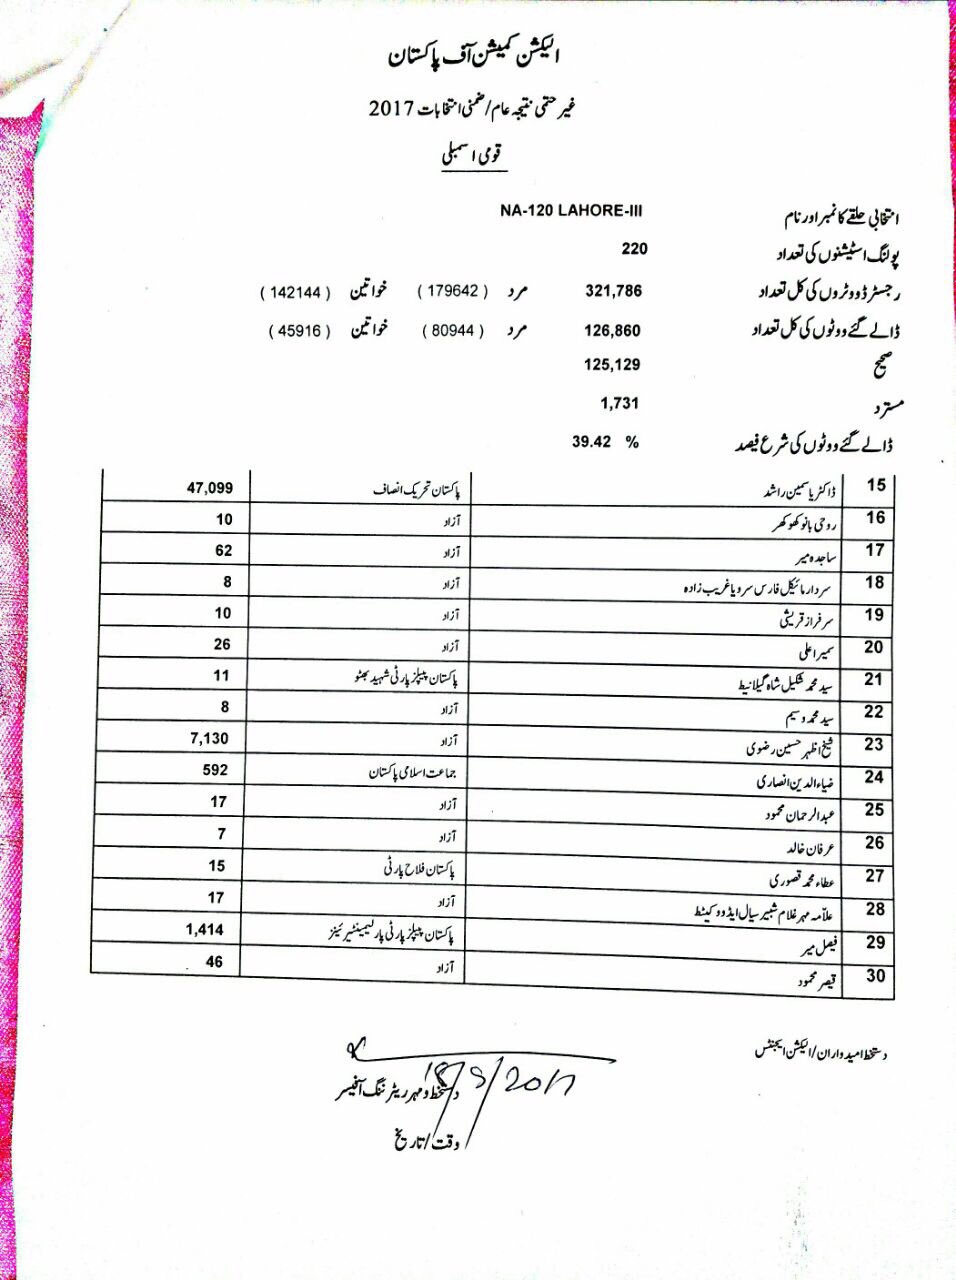 الیکشن کمیشن آف پاکستان
غیر حتمی نتیجہ عام/ضمنی انتخابات 2017
قومی اسمبلی
انتخابی حلقے کا نمبر اور نام NA-120 LAHORE-III
پولنگ اسٹیشنوں کی تعداد 220
رجسٹرڈ ووٹروں کی کل تعداد 321,786 مرد (179642) خواتین (142144)
ڈالے گئے ووٹوں کی کل تعداد 126,860 مرد (80944) خواتین (45916)
صحیح 125,129
مسترد 1,731
ڈالے گئے ووٹوں کی شرع فیصد 39.42 %
15 ڈاکٹر یاسمین راشد پاکستان تحریک انصاف 47,099
16 روحی بانو کھوکھر آزاد 10
17 ساجدہ میر آزاد 62
18 سردار مائیکل فارس سرویا غریب زادہ آزاد 8
19 سرفراز قریشی آزاد 10
20 سمیرا علی آزاد 26
21 سید محمد شکیل شاہ گیلانیط پاکستان پیپلز پارٹی شہید بھٹو 11
22 سید محمد وسیم آزاد 8
23 شیخ اظہر حسین رضوی آزاد 7,130
24 ضیاءالدین انصاری جماعت اسلامی پاکستان 592
25 عبدالرحمان محمود آزاد 17
26 عرفان خالد آزاد 7
27 عطاء محمد قصوری پاکستان فلاح پارٹی 15
28 علامہ مہر غلام شبیر سیال ایڈووکیٹط آزاد 17
29 فیصل میر پاکستان پیپلز پارٹی پارلیمینٹیرئینز 1,414
30 قیصر محمود آزاد 46
دستخط امیدواران/الیکشن ایجنٹس
18/9/2017
دستخط و مہر ریٹرننگ آفیسر
وقت/تاریخ